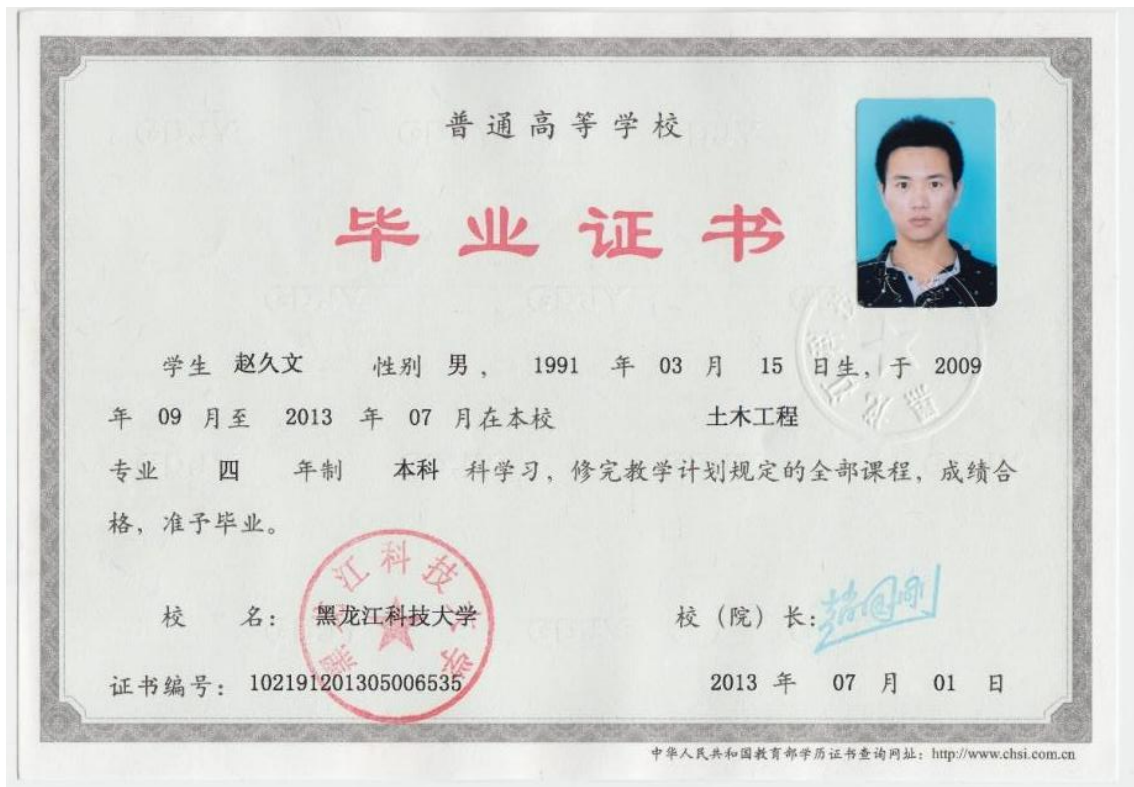 普通高等学校
毕业证书
学生 赵久文 性别 男 ， 1991 年 03 月 15 日生，于 2009
年 09 月至 2013 年 07 月在本校 土木工程
专业 四 年制 本科 科学习，修完教学计划规定的全部课程，成绩合
格，准予毕业。
校 名： 黑龙江科技大学 校（院）长：
黑龙江科技大学
证书编号： 102191201305006535 2013 年 07 月 01 日
中华人民共和国教育部学历证书查询网址：http://www.chsi.com.cn